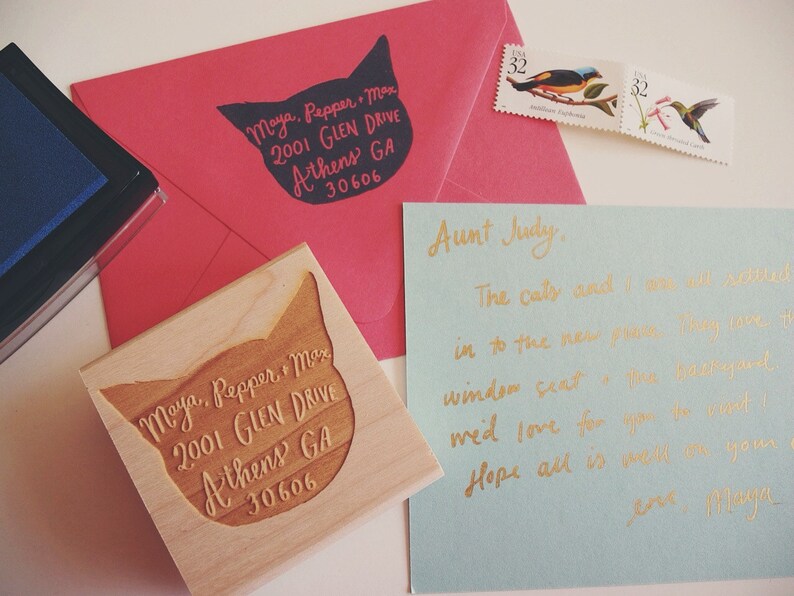 Maya, Pepper + Max
2001 GLEN DRIVE
Athens GA
30606
USA
32
Antillean Euphonia
USA
32
Green-throated Carib
Aunt Judy,
The cats and I are all settled
in to the new place. They love the
window seat + the backyard.
We'd love for you to visit!
Hope all is well on your
Maya
Maya, Pepper + Max
2001 GLEN DRIVE
Athens GA
30606